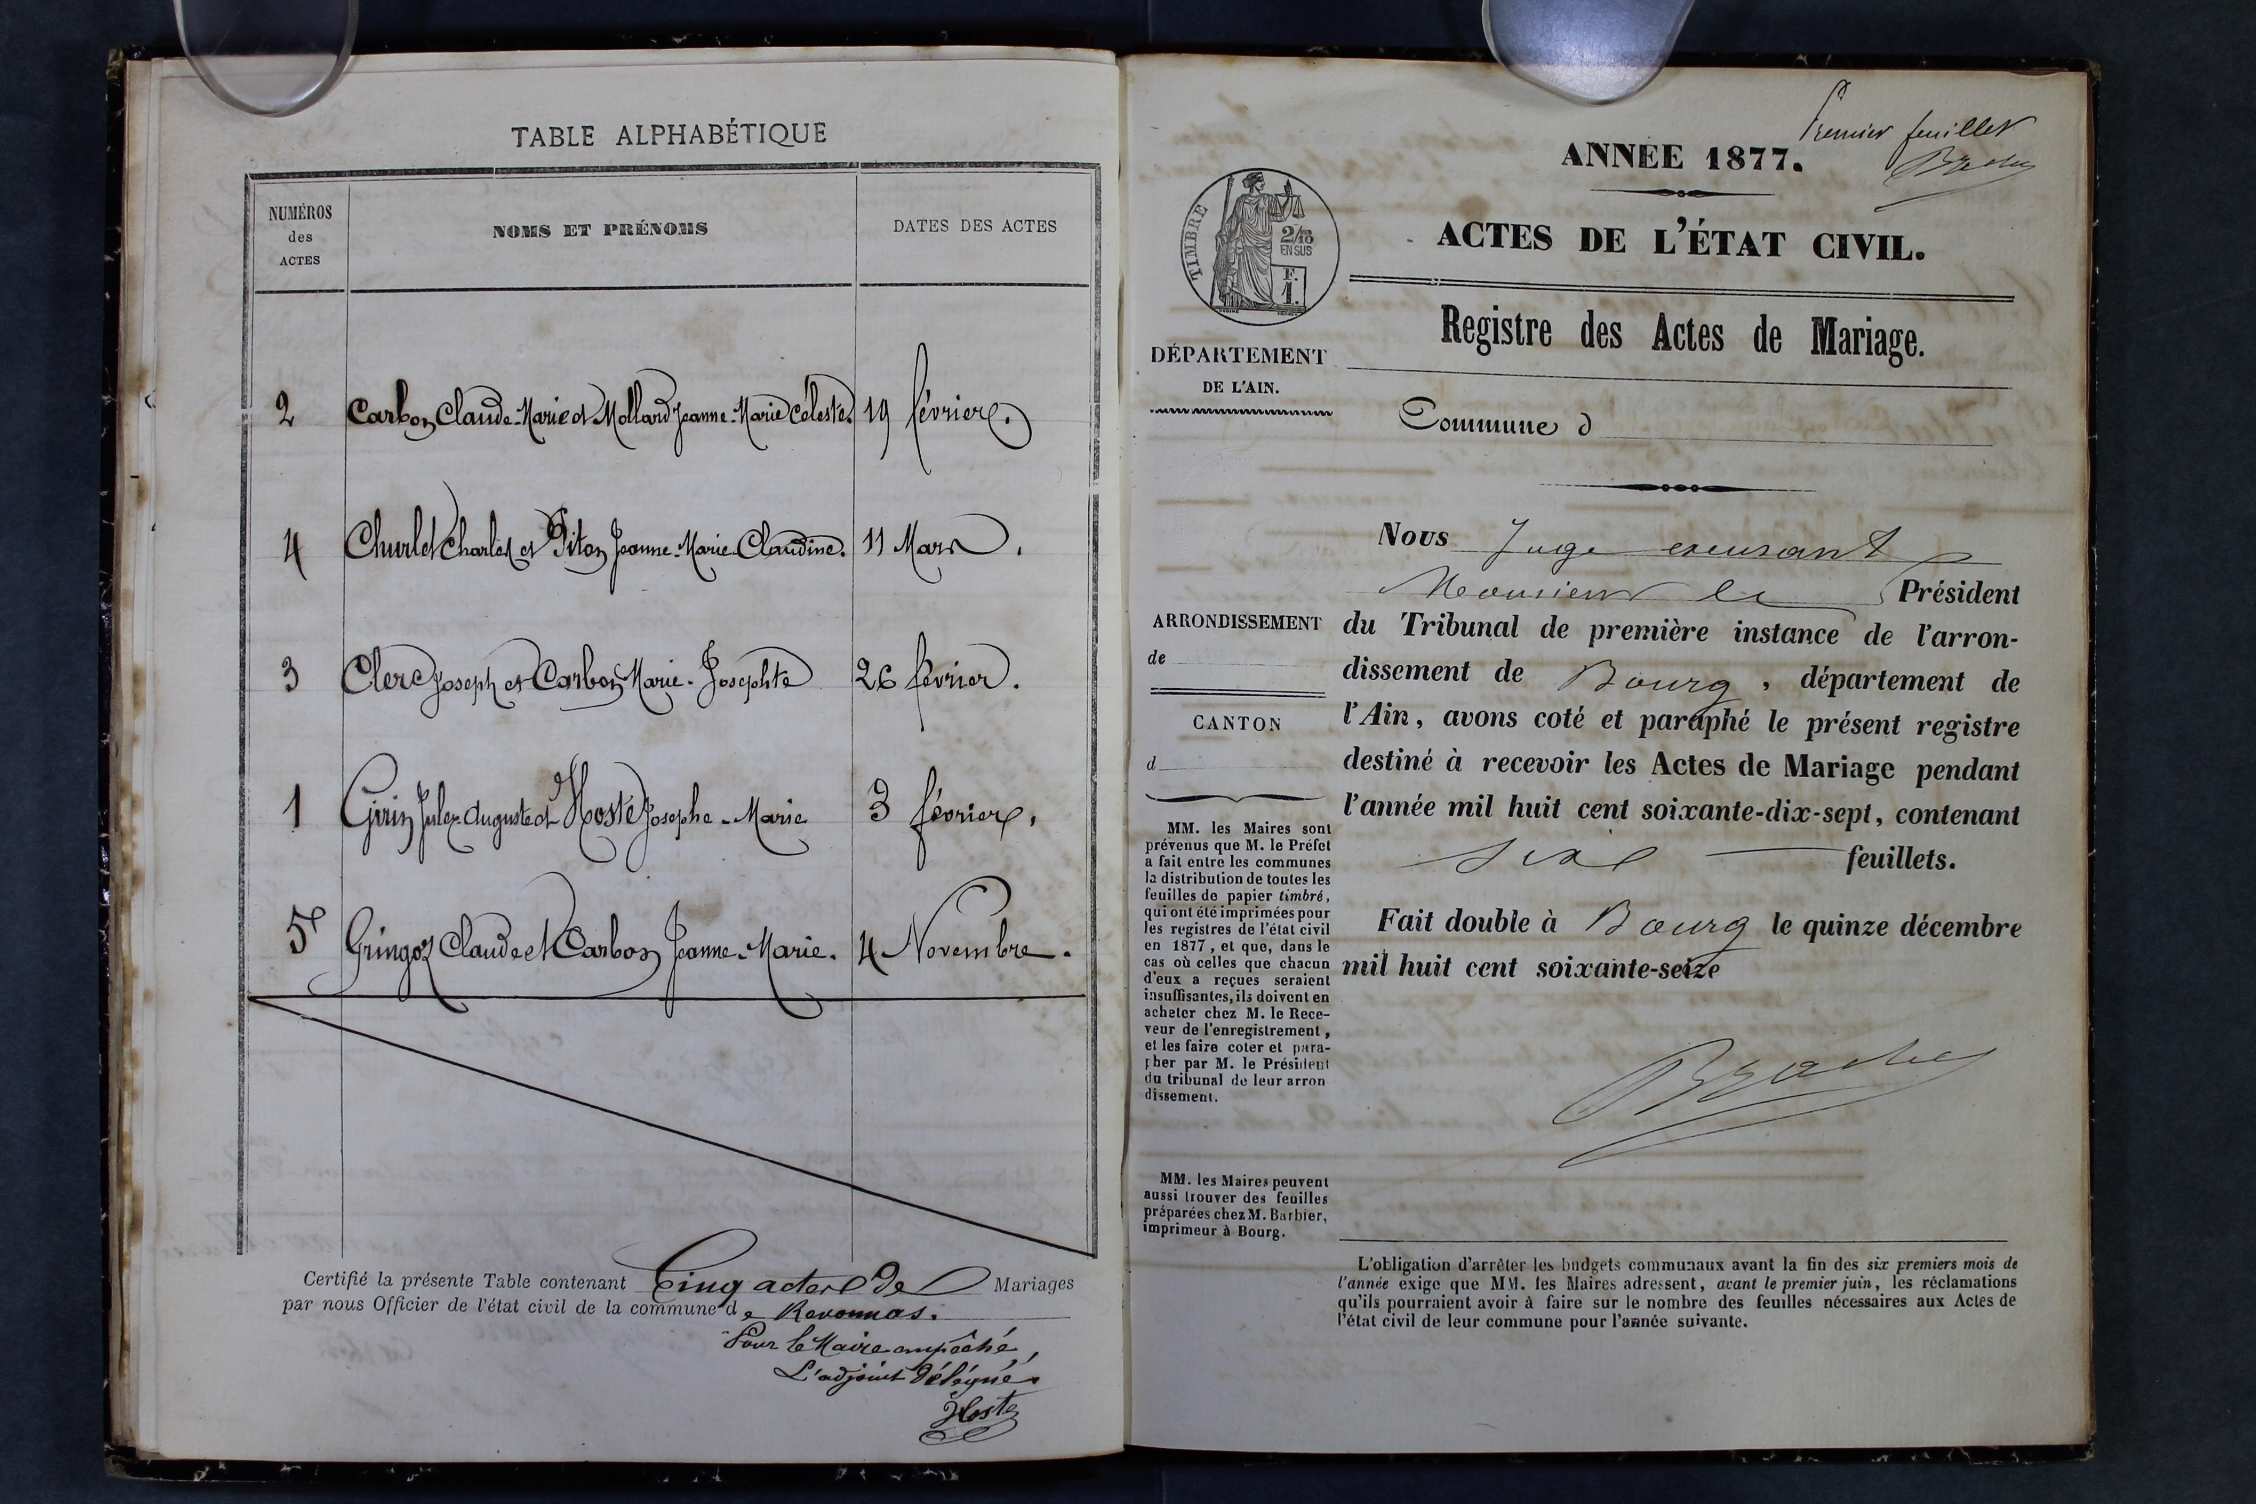 TABLE ALPHABÉTIQUE
NUMÉROS
des
ACTES
NOMS ET PRÉNOMS
DATES DES ACTES
2 Carbon Claude-Marie et Mollard Jeanne-Marie Céleste. 19 février.
4 Churlet Charles et Piton Jeanne-Marie Claudine. 11 Mars.
3 Clerc Joseph et Carbon Marie-Josephte 26 février.
1 Girin Jules Auguste et Hoste Josephe-Marie 3 février.
5 Gringoz Claude et Carbon Jeanne-Marie. 4 Novembre.
Certifié la présente Table contenant Cinq actes de Mariages
par nous Officier de l'état civil de la commune de Revonnas.
Pour le Maire empêché,
L'adjoint délégué.
Hoste
Premier feuillet
ANNÉE 1877.
ACTES DE L'ÉTAT CIVIL.
TIMBRE
2/10
EN SUS
F.
1.
Registre des Actes de Mariage.
DÉPARTEMENT
DE L'AIN.
Commune d
ARRONDISSEMENT
de
CANTON
d
MM. les Maires sont
prévenus que M. le Préfet
a fait entre les communes
la distribution de toutes les
feuilles de papier timbré,
qui ont été imprimées pour
les registres de l'état civil
en 1877, et que, dans le
cas où celles que chacun
d'eux a reçues seraient
insuffisantes, ils doivent en
acheter chez M. le Rece-
veur de l'enregistrement,
et les faire coter et para-
pher par M. le Président
du tribunal de leur arron
dissement.
MM. les Maires peuvent
aussi trouver des feuilles
préparées chez M. Barbier,
imprimeur à Bourg.
Nous Juge excusant
Monsieur le Président
du Tribunal de première instance de l'arron-
dissement de Bourg, département de
l'Ain, avons coté et paraphé le présent registre
destiné à recevoir les Actes de Mariage pendant
l'année mil huit cent soixante-dix-sept, contenant
six feuillets.
Fait double à Bourg le quinze décembre
mil huit cent soixante-seize
L'obligation d'arrêter les budgets communaux avant la fin des six premiers mois de
l'année exige que MM. les Maires adressent, avant le premier juin, les réclamations
qu'ils pourraient avoir à faire sur le nombre des feuilles nécessaires aux Actes de
l'état civil de leur commune pour l'année suivante.